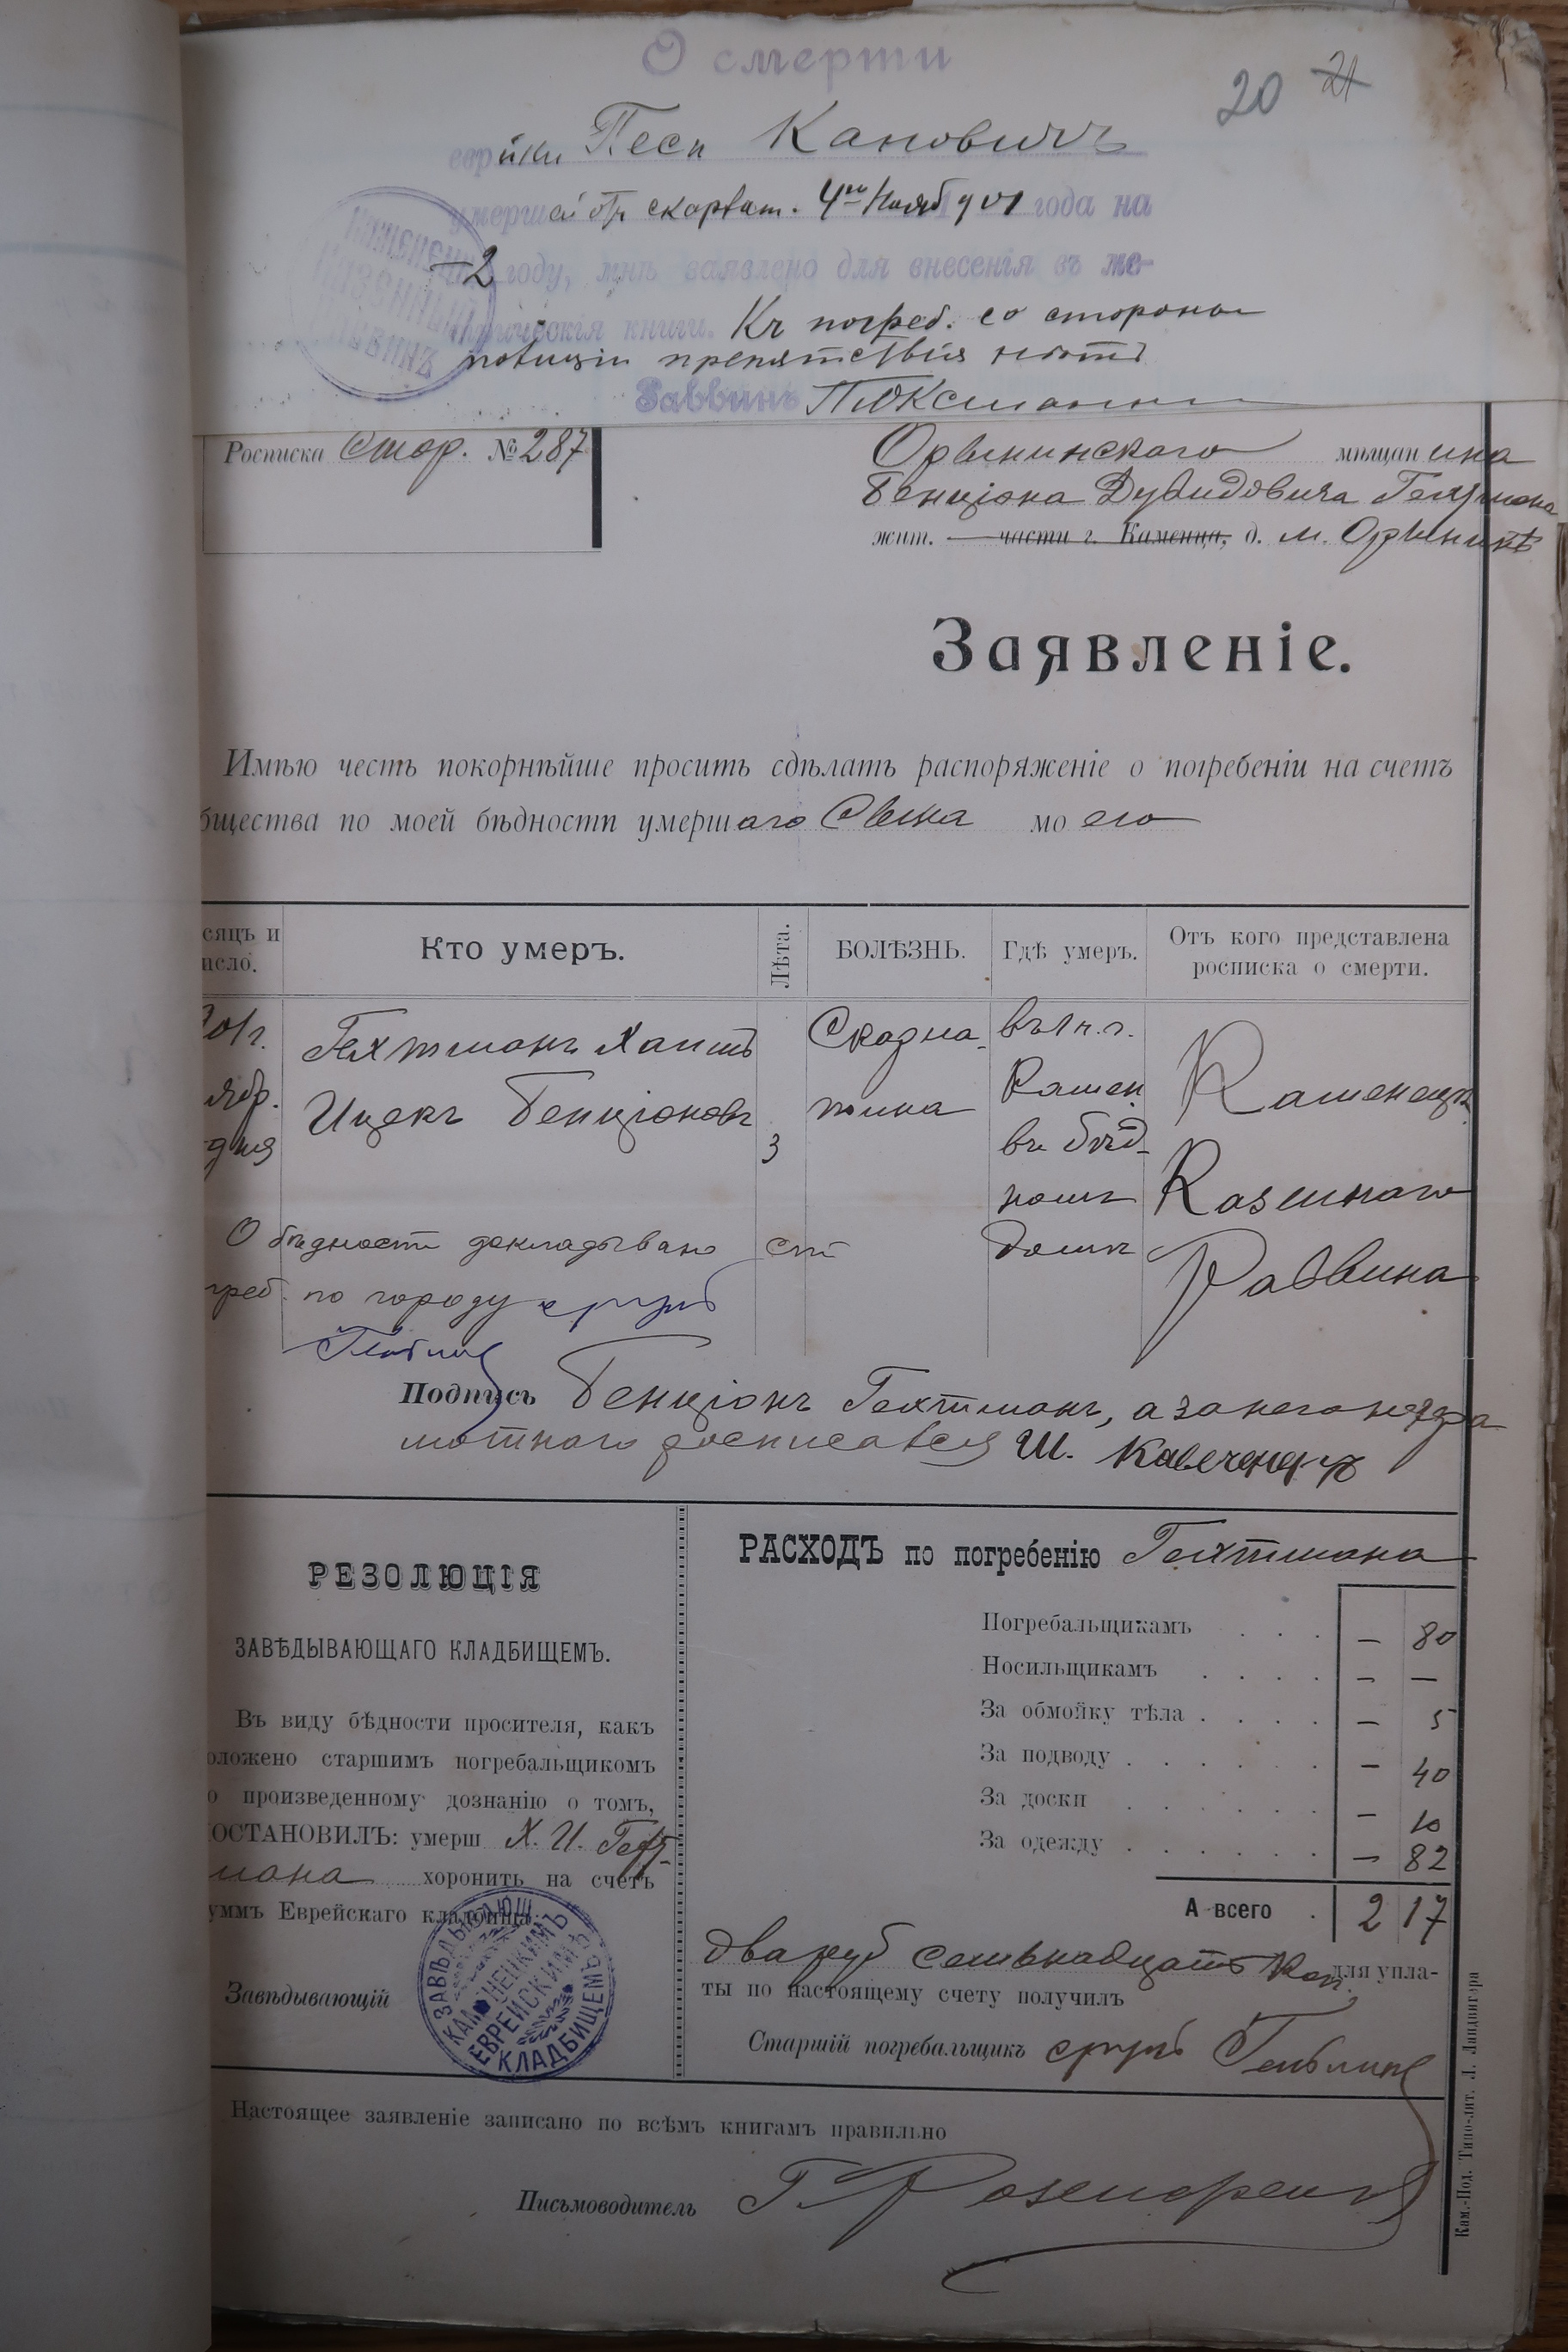 О смерти
20 21
еврейки Песи Кановичъ
умершей отъ скарлат. 4го Нояб 901 года на
2 году, мнѣ заявлено для внесенія въ ме-
трическія книги. Къ погреб. со стороны
полиціи препятствія нѣтъ
Раввинъ
КАМЕНЕЦ КАЗЕННЫЙ РАВВИНЪ
Росписка Стор. № 287
Орынинскаго мѣщанина
Бенціона Дувидовича Гехтмана
жит. части г. Каменца, д. м. Орынинѣ
Заявленіе.
Имѣю честь покорнѣйше просить сдѣлать распоряженіе о погребеніи на счетъ
бщества по моей бѣдности умершаго Сына моего
сяцъ и
исло.
Кто умеръ.
Лѣта.
БОЛѢЗНЬ.
Гдѣ умеръ.
Отъ кого представлена
росписка о смерти.
901г.
ябр.
дня
Гехтманъ Хаимъ
Ицекъ Бенціоновъ
3
Скарла-
тина
въ г.
Камен.
въ бѣд-
номъ
домѣ
Каменецк.
Казеннаго
Раввина
О бѣдности докладывано ст
греб. по городу
Подпись Бенціонъ Гехтманъ, а за него негра
мотнаго росписался Ш.
РЕЗОЛЮЦІЯ
ЗАВѢДЫВАЮЩАГО КЛАДБИЩЕМЪ.
Въ виду бѣдности просителя, какъ
оложено старшимъ погребальщикомъ
о произведенному дознанію о томъ,
ОСТАНОВИЛЪ: умерш Х. И. Гехт-
мана хоронить на счетъ
уммъ Еврейскаго кладбища.
Завѣдывающій
ЗАВѢДЫВАЮЩ. КАМЕНЕЦКИМЪ ЕВРЕЙСКИМЪ КЛАДБИЩЕМЪ
РАСХОДЪ по погребенію Гехтмана
Погребальщикамъ . . . — 80
Носильщикамъ . . . . — —
За обмойку тѣла . . . . — 5
За подводу . . . . . . — 40
За доски . . . . . . — 10
За одежду . . . . . . — 82
А всего . 2 17
два руб семьнадцать коп. для упла-
ты по настоящему счету получилъ
Старшій погребальщикъ
Настоящее заявленіе записано по всѣмъ книгамъ правильно
Письмоводитель
Кам.-Под. Типо-лит. Л. Ландвигера